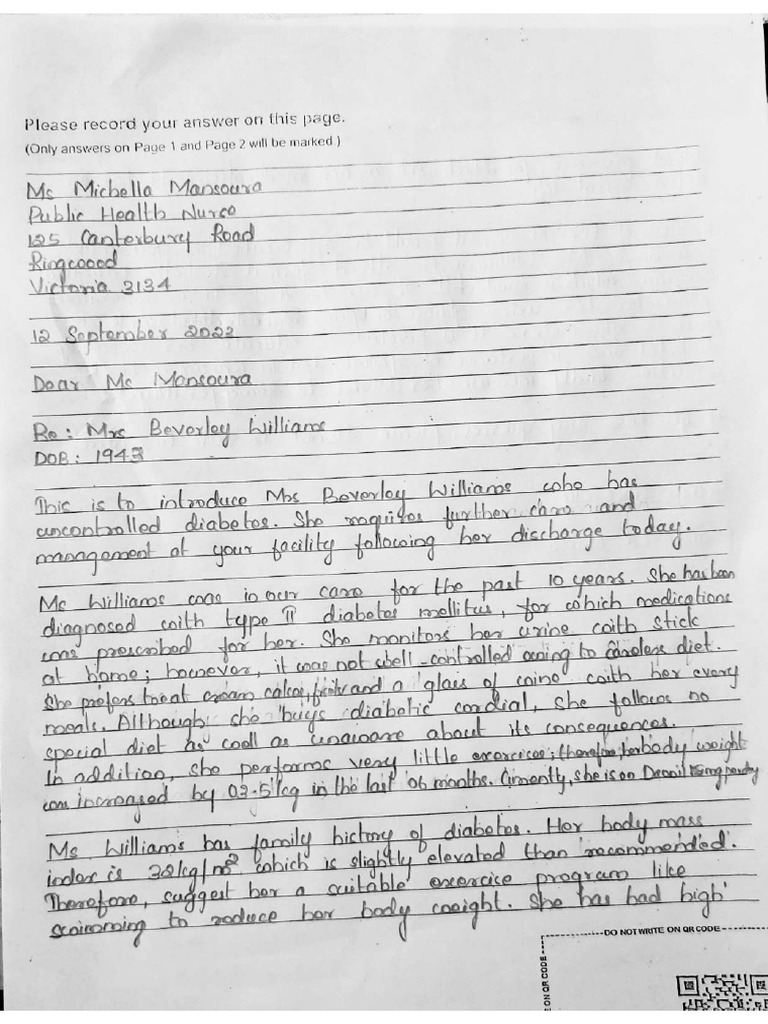 Please record your answer on this page.
(Only answers on Page 1 and Page 2 will be marked )
Ms Michella Mansoura
Public Health Nurse
125 Canterbury Road
Ringwood
Victoria 3134
12 September 2023
Dear Ms Mansoura
Re: Mrs Beverley Williams
DOB: 1943
This is to introduce Mrs Beverley Williams who has
uncontrolled diabetes. She requires further care and
management at your facility following her discharge today.
Ms Williams was in our care for the past 10 years. She has been
diagnosed with type II diabetes mellitus, for which medications
was prescribed for her. She monitors her urine with stick
at home; however, it was not well-controlled owing to careless diet.
She prefers to eat cream cakes, and a glass of wine with her every
meals. Although she buys diabetic cordial, she follows no
special diet as well as unaware about its consequences.
In addition, she performs very little exercises; therefore, her body weight
was increased by 02.5kg in the last 06 months. Currently, she is on Daonil 5mg
Ms Williams has family history of diabetes. Her body mass
index is 32kg/m² which is slightly elevated than recommended.
Therefore, suggest her a suitable exercise program like
swimming to reduce her body weight. She has had high
DO NOT WRITE ON QR CODE
E ON QR CODE